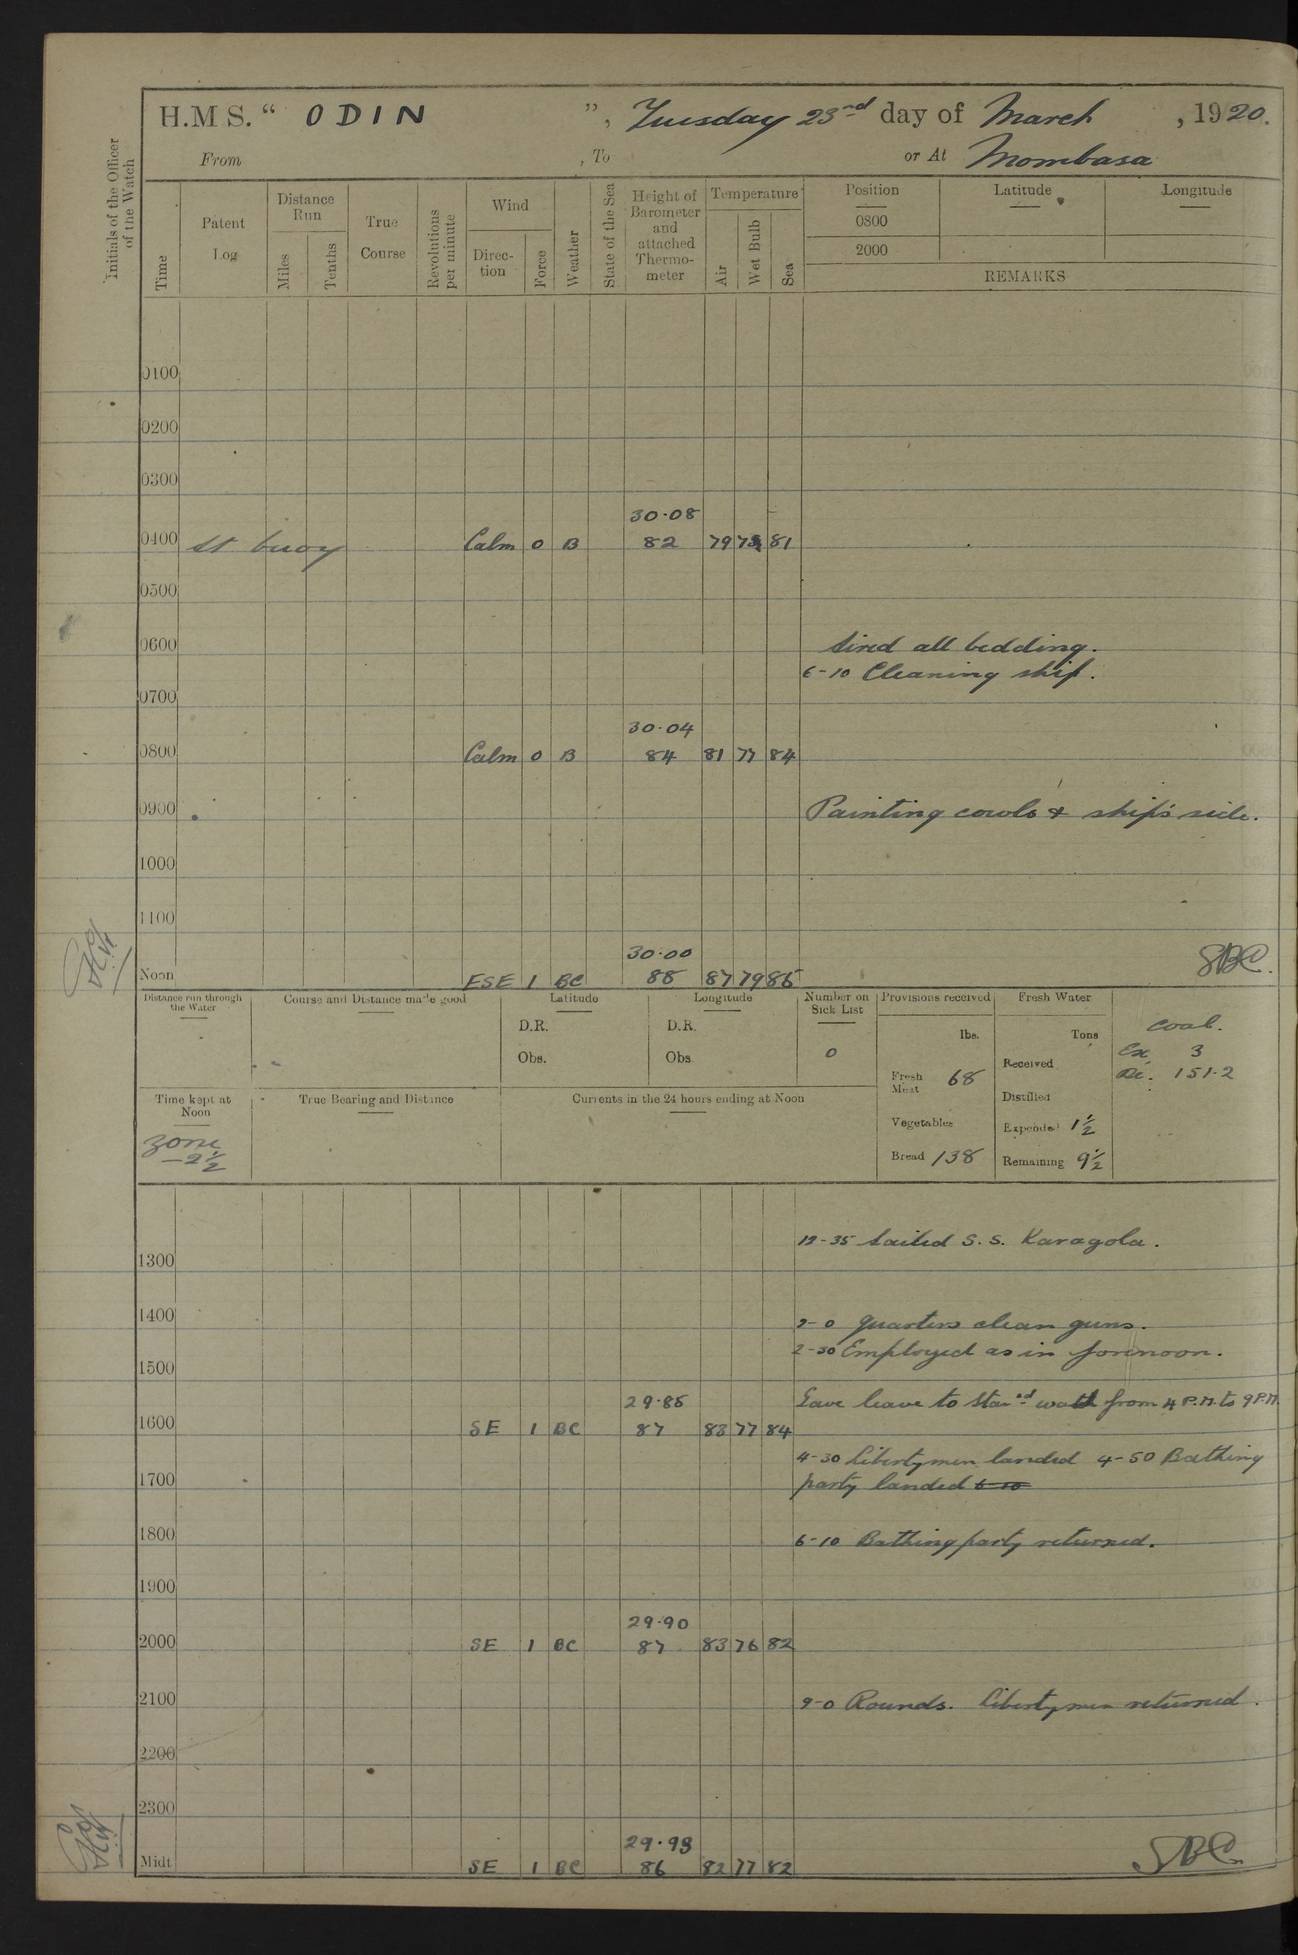 H.M S. “ ODIN ”, Tuesday 23rd day of March , 1920.
From , To or At Mombasa
Initials of the Officer of the Watch
Time
Patent Log
Distance Run
Miles
Tenths
True Course
Revolutions per minute
Wind
Direction
Force
Weather
State of the Sea
Height of Barometer and attached Thermometer
Temperature
Air
Wet Bulb
Sea
Position Latitude Longitude
0800
2000
REMARKS
0100
0200
0300
30·08
0400 At buoy Calm 0 B 82 79 81
0500
0600 Aired all bedding.
6-10 Cleaning ship.
0700
30·04
0800 Calm 0 B 84 81 77 84
0900 Painting cowls & ship's side.
1000
1100
30·00
Noon ESE 1 BC 88 87 79 85 SBC.
Distance run through the Water
Course and Distance made good
Latitude
D.R.
Obs.
Longitude
D.R.
Obs.
Number on Sick List
0
Provisions received
lbs.
Fresh Meat 68
Vegetables
Bread 138
Fresh Water
Tons
Received
Distilled
Expended 1½
Remaining 9½
Coal.
Ex. 3
Re. 151·2
Time kept at Noon
Zone
-2½
True Bearing and Distance
Currents in the 24 hours ending at Noon
12-35 Sailed S.S. Karagola.
1300
1400 2-0 Quarters clean guns.
2-30 Employed as in forenoon.
1500
29·85 Gave leave to Starbd watch from 4 P.M. to 9 P.M.
1600 SE 1 BC 87 83 77 84
4-30 Libertymen landed 4-50 Bathing
1700 party landed
1800 6-10 Bathing party returned.
1900
29·90
2000 SE 1 BC 87 83 76 82
2100 9-0 Rounds. Libertymen returned.
2200
2300
29·93
Midt SE 1 BC 86 82 77 82 SBC